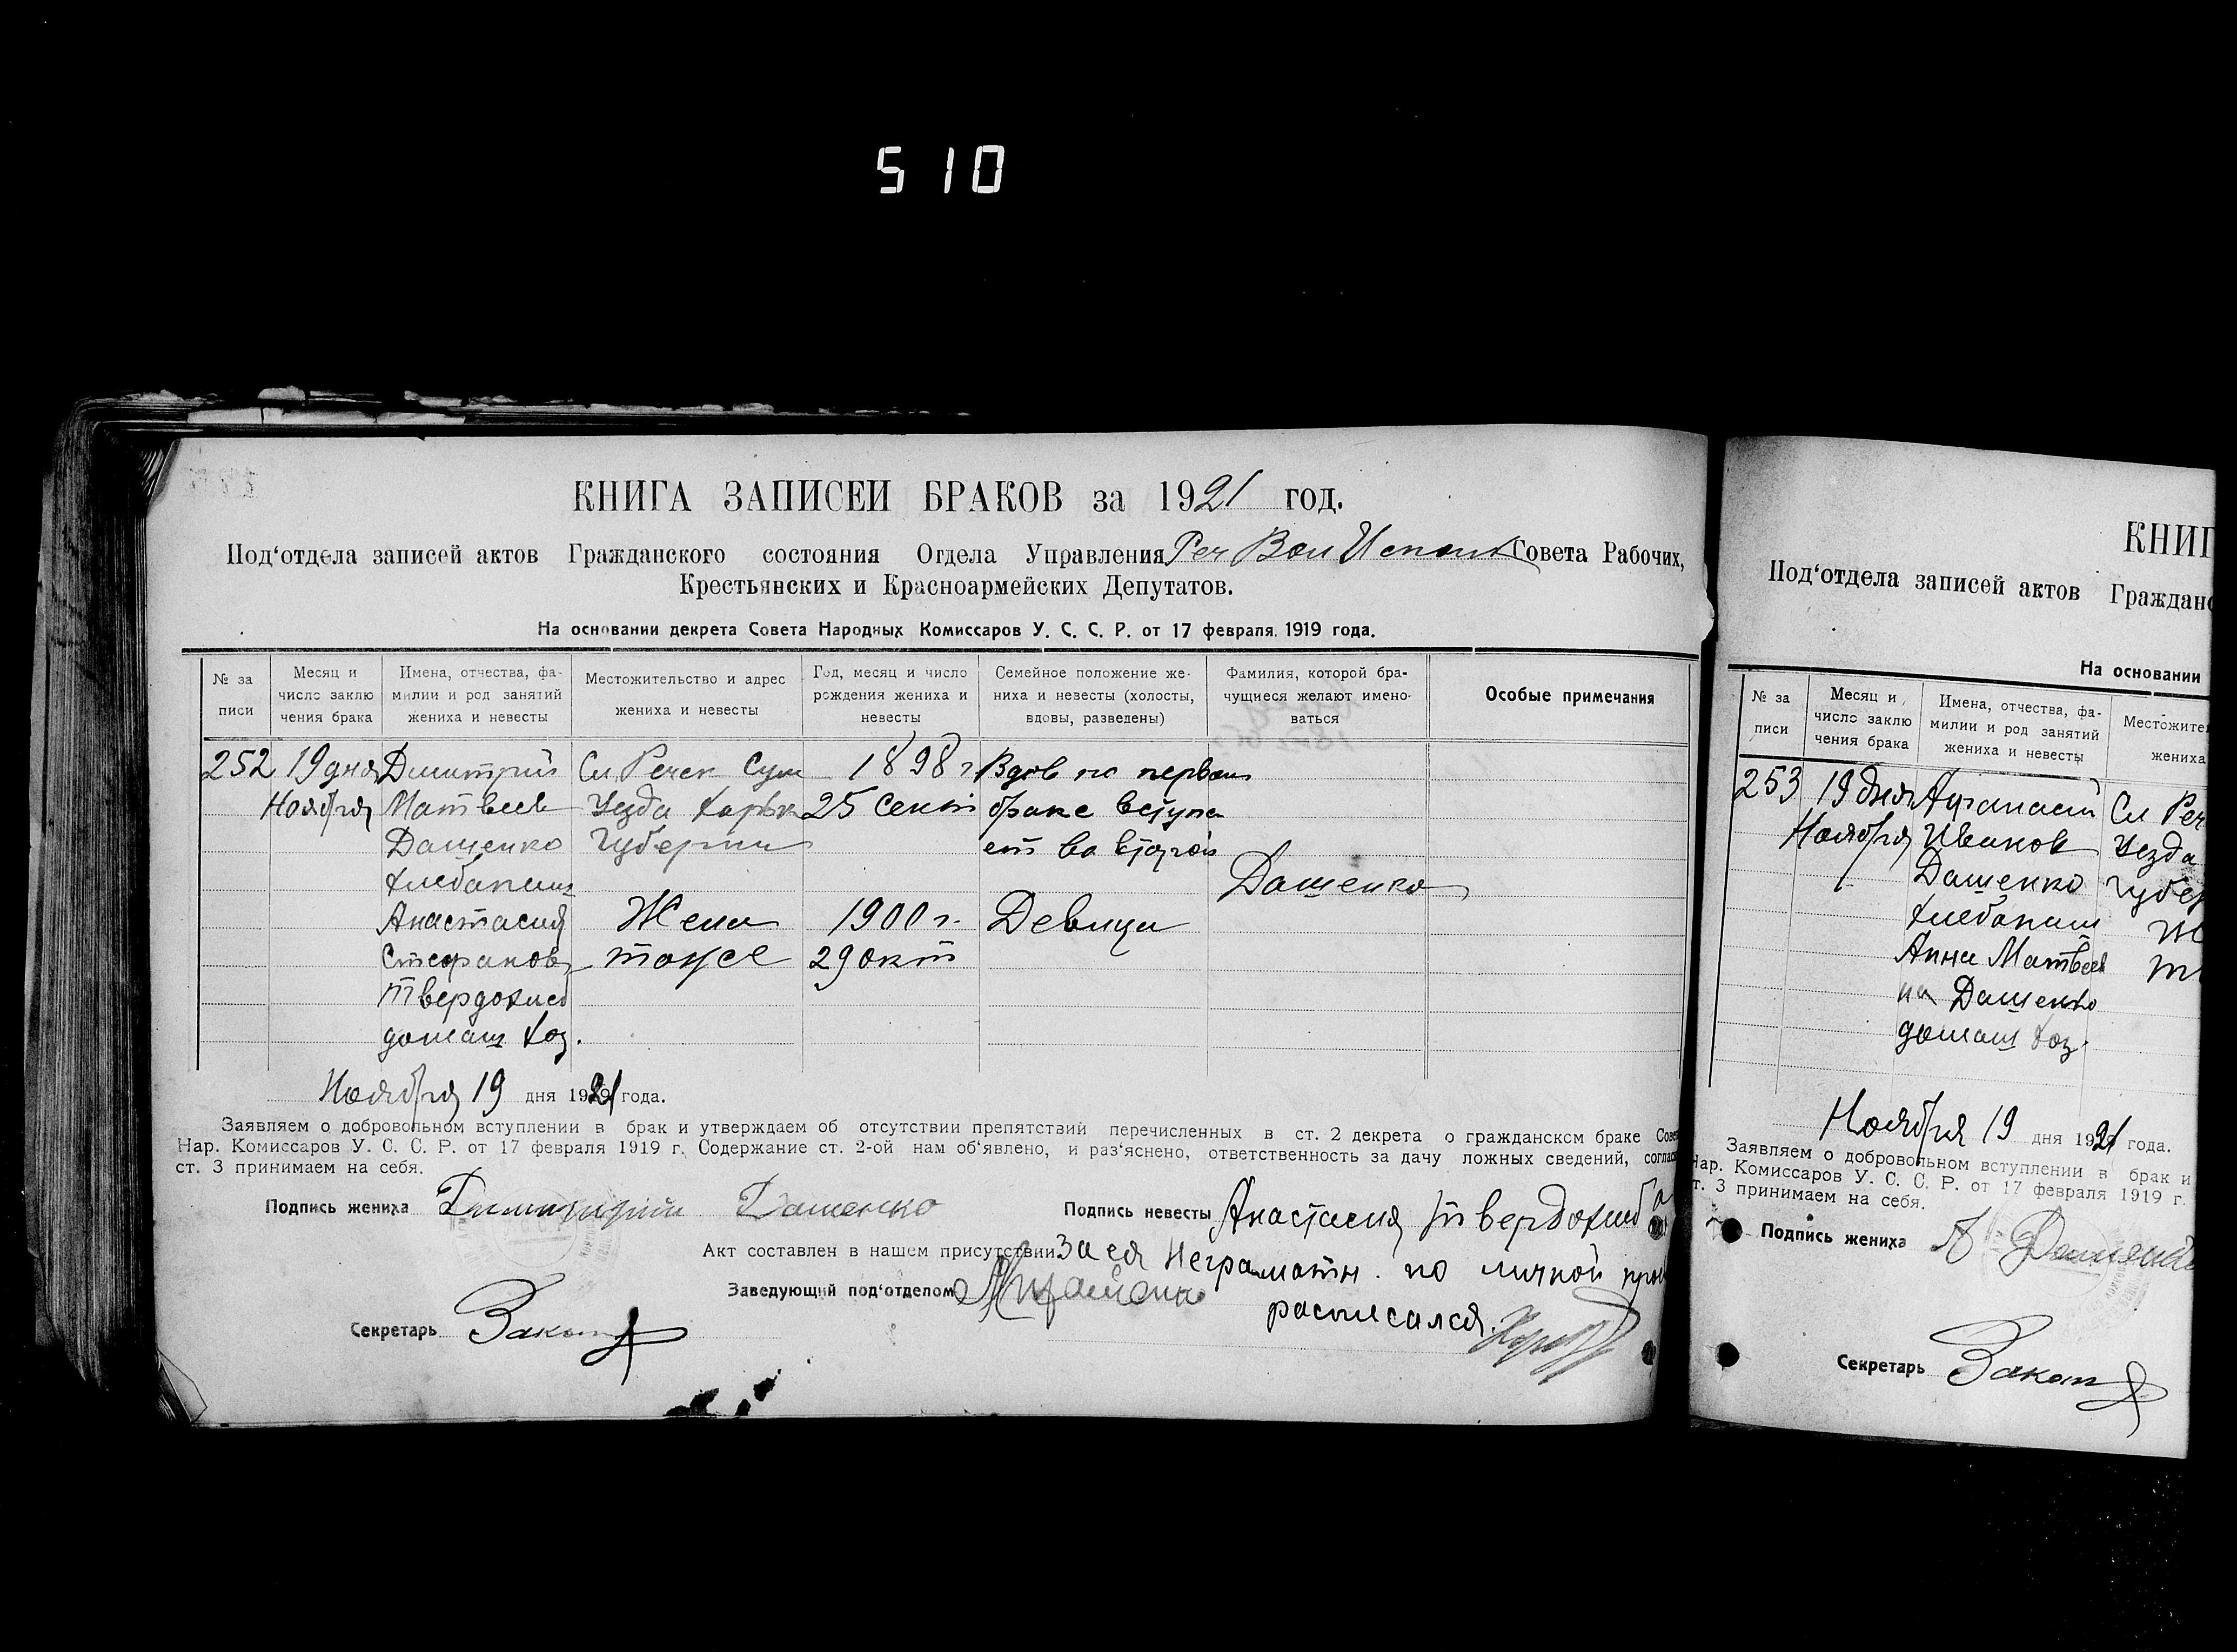 510
КНИГА ЗАПИСЕЙ БРАКОВ за 1921 год.
Под‘отдела записей актов Гражданского состояния Отдела Управления Реч Вол Исполк Совета Рабочих,
Крестьянских и Красноармейских Депутатов.
На основании декрета Совета Народных Комиссаров У. С. С. Р. от 17 февраля 1919 года.
№ за писи
Месяц и число заклю чения брака
Имена, отчества, фа- милии и род занятий жениха и невесты
Местожительство и адрес жениха и невесты
Год, месяц и число рождения жениха и невесты
Семейное положение же- ниха и невесты (холосты, вдовы, разведены)
Фамилия, которой бра- чущиеся желают имено- ваться
Особые примечания
252 19 дня Дмитрий Сл Речек Сум 1898 г Вдов по первом
Ноября Матвеев Уезда Харьк 25 сент браке вступа
Дашенко Губернии ет во второй
хлебопаш Дашенко
Анастасия Жена 1900 г. Девица
Стефанов тоже 29 окт
Твердохлеб
домаш хоз.
Ноября 19 дня 1921 года.
Заявляем о добровольном вступлении в брак и утверждаем об отсутствии препятствий перечисленных в ст. 2 декрета о гражданском браке Сове
Нар. Комиссаров У. С. С. Р. от 17 февраля 1919 г. Содержание ст. 2-ой нам об‘явлено, и раз‘яснено, ответственность за дачу ложных сведений, соглас
ст. 3 принимаем на себя.
Подпись жениха Димитрий Дашенко Подпись невесты Анастасия Твердохлеба
Акт составлен в нашем присутствии За ея неграмотн. по личной прось
Заведующий под‘отделом расписался.
Секретарь
КНИГ
Под‘отдела записей актов Гражданс
На основании
№ за писи
Месяц и число заклю чения брака
Имена, отчества, фа- милии и род занятий жениха и невесты
Местожите жениха
253 19 дня Афанасий Сл Реч
Ноября Иванов Уезда
Дашенко Губер
хлебопаш Ж
Анна Матвеев т
на Дашенко
домаш хоз.
Ноября 19 дня 1921 года.
Заявляем о добровольном вступлении в брак и
Нар. Комиссаров У. С. С. Р. от 17 февраля 1919 г.
т. 3 принимаем на себя.
Подпись жениха А Дашенко
Секретарь